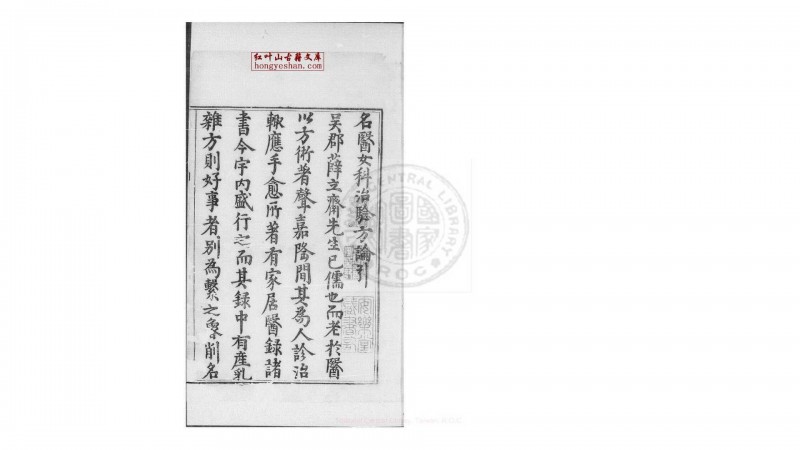 红叶山古籍文库
hongyeshan.com
名醫女科治驗方論引
吳郡薛立齋先生已儒也而老於醫
以方術著聲嘉隆間其為人診治
輙應手愈所著有家居醫錄諸
書今宇內盛行之而其錄中有產乳
雜方則好事者別為繫之 削名
CENTRAL LIBRARY
ROC
國家圖書